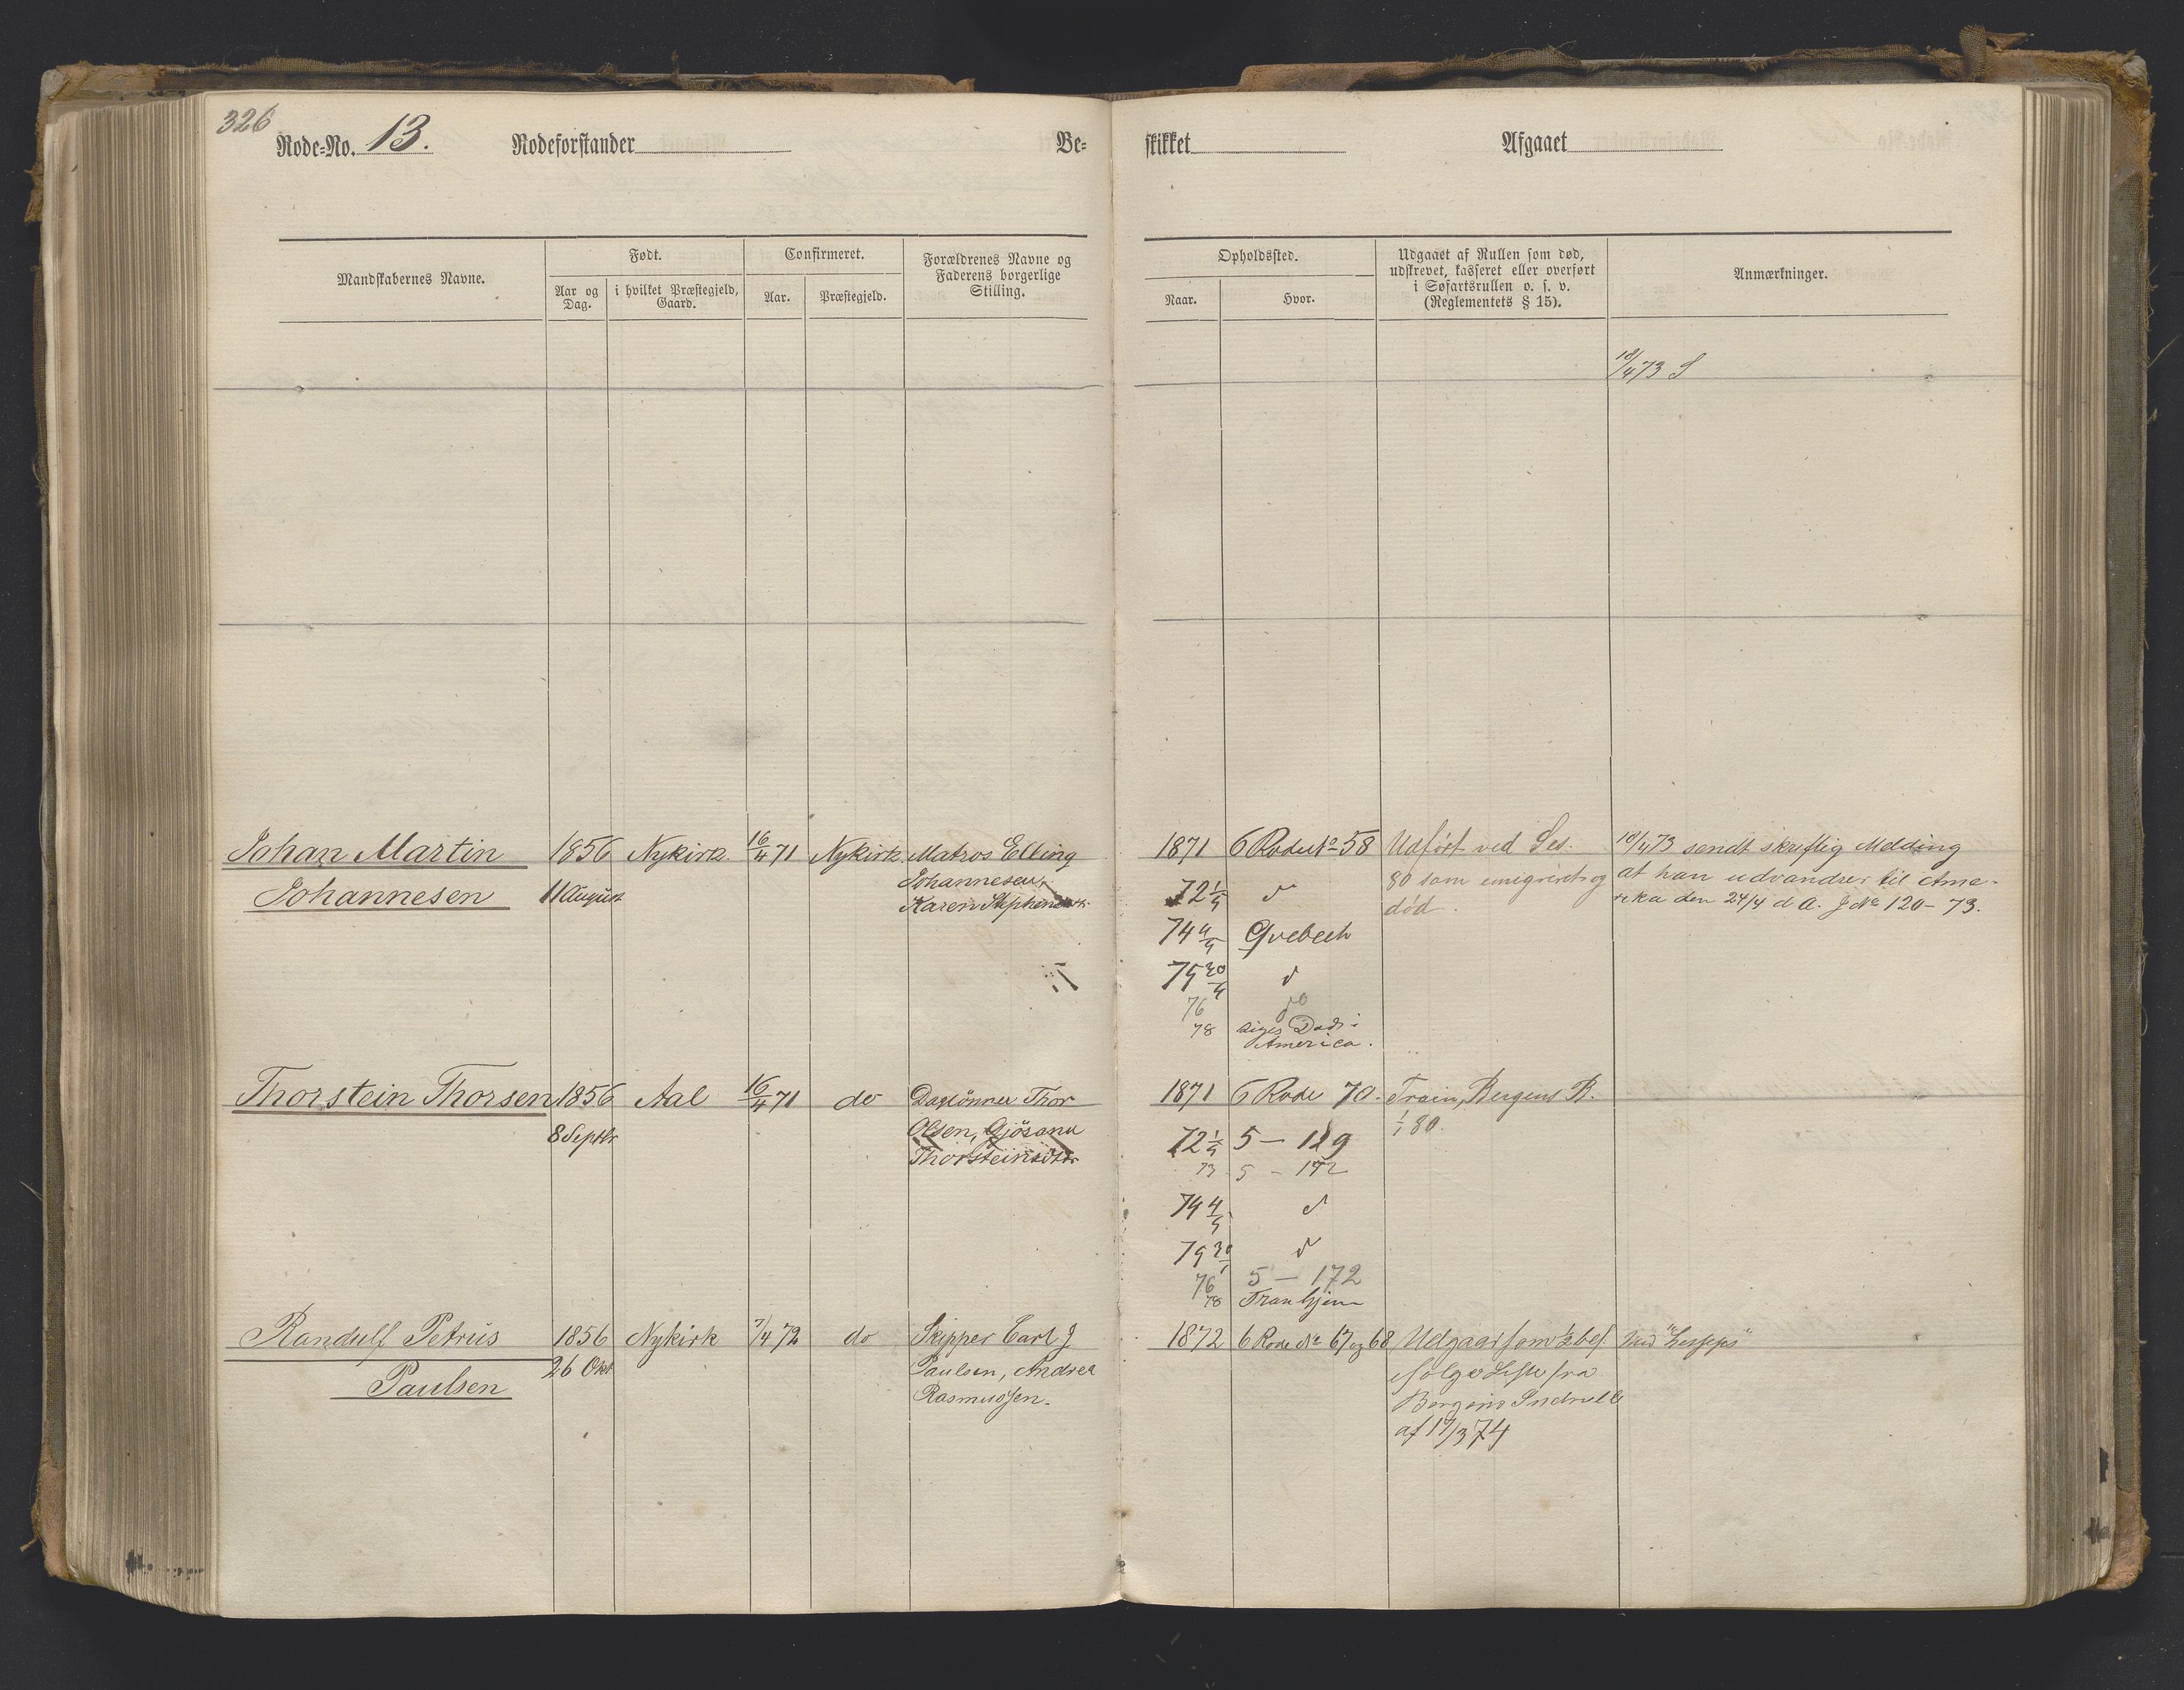 326
Rode=No. 13. Rodeforstander Be=
skikket Afgaaet
Mandskabernes Navne.
Født.
Aar og
Dag.
i hvilket Præstegjeld,
Gaard.
Confirmeret.
Aar.
Præstegjeld.
Forældrenes Navne og
Faderens borgerlige
Stilling.
Opholdssted.
Naar.
Hvor.
Udgaaet af Rullen som død,
udskrevet, kasseret eller overført
i Søfartsrullen o. s. v.
(Reglementets § 15).
Anmærkninger.
18/4 73 S
Johan Martin
Johannesen
1856
11 August
Nykirk.
16/4 71
Nykirk
Matros Elling
Johannesen,
Karen
1871 6 Rode No 58
72 1/5 d
74 4/5 Qvebech
75 30/4 d
76 do
78 siges Død i
America.
Udført ved Ses.
80 som emigreret og
død.
18/4 73 sendt skriftlig Melding
at han udvandrer til Ame-
rika den 24/4 d. A. J No 120-73.
Thorstein Thorsen
1856
8 Septbr
Aal
16/4 71
do
Daglönner Thor
Olsen,
Thorsteinsdtr
1871 6 Rode 70.
72 1/5 5 — 129
73 5 - 172
74 4/5 d
75 30/4 d
76 5 — 172
78 Trondhjem
Train, Bergens B.
1/1 80.
Randulf Petrus
Paulsen
1856
26 Okt
Nykirk
7/4 72
do
Skipper Carl J
Paulsen, Andrea
Rasmussen.
1872 6 Rode No 67 og 68
Udgaar som 1/2 bef.
ifølge Liste fra
Bergens Indrulle
af 17/3 74
Med "Lesseps"